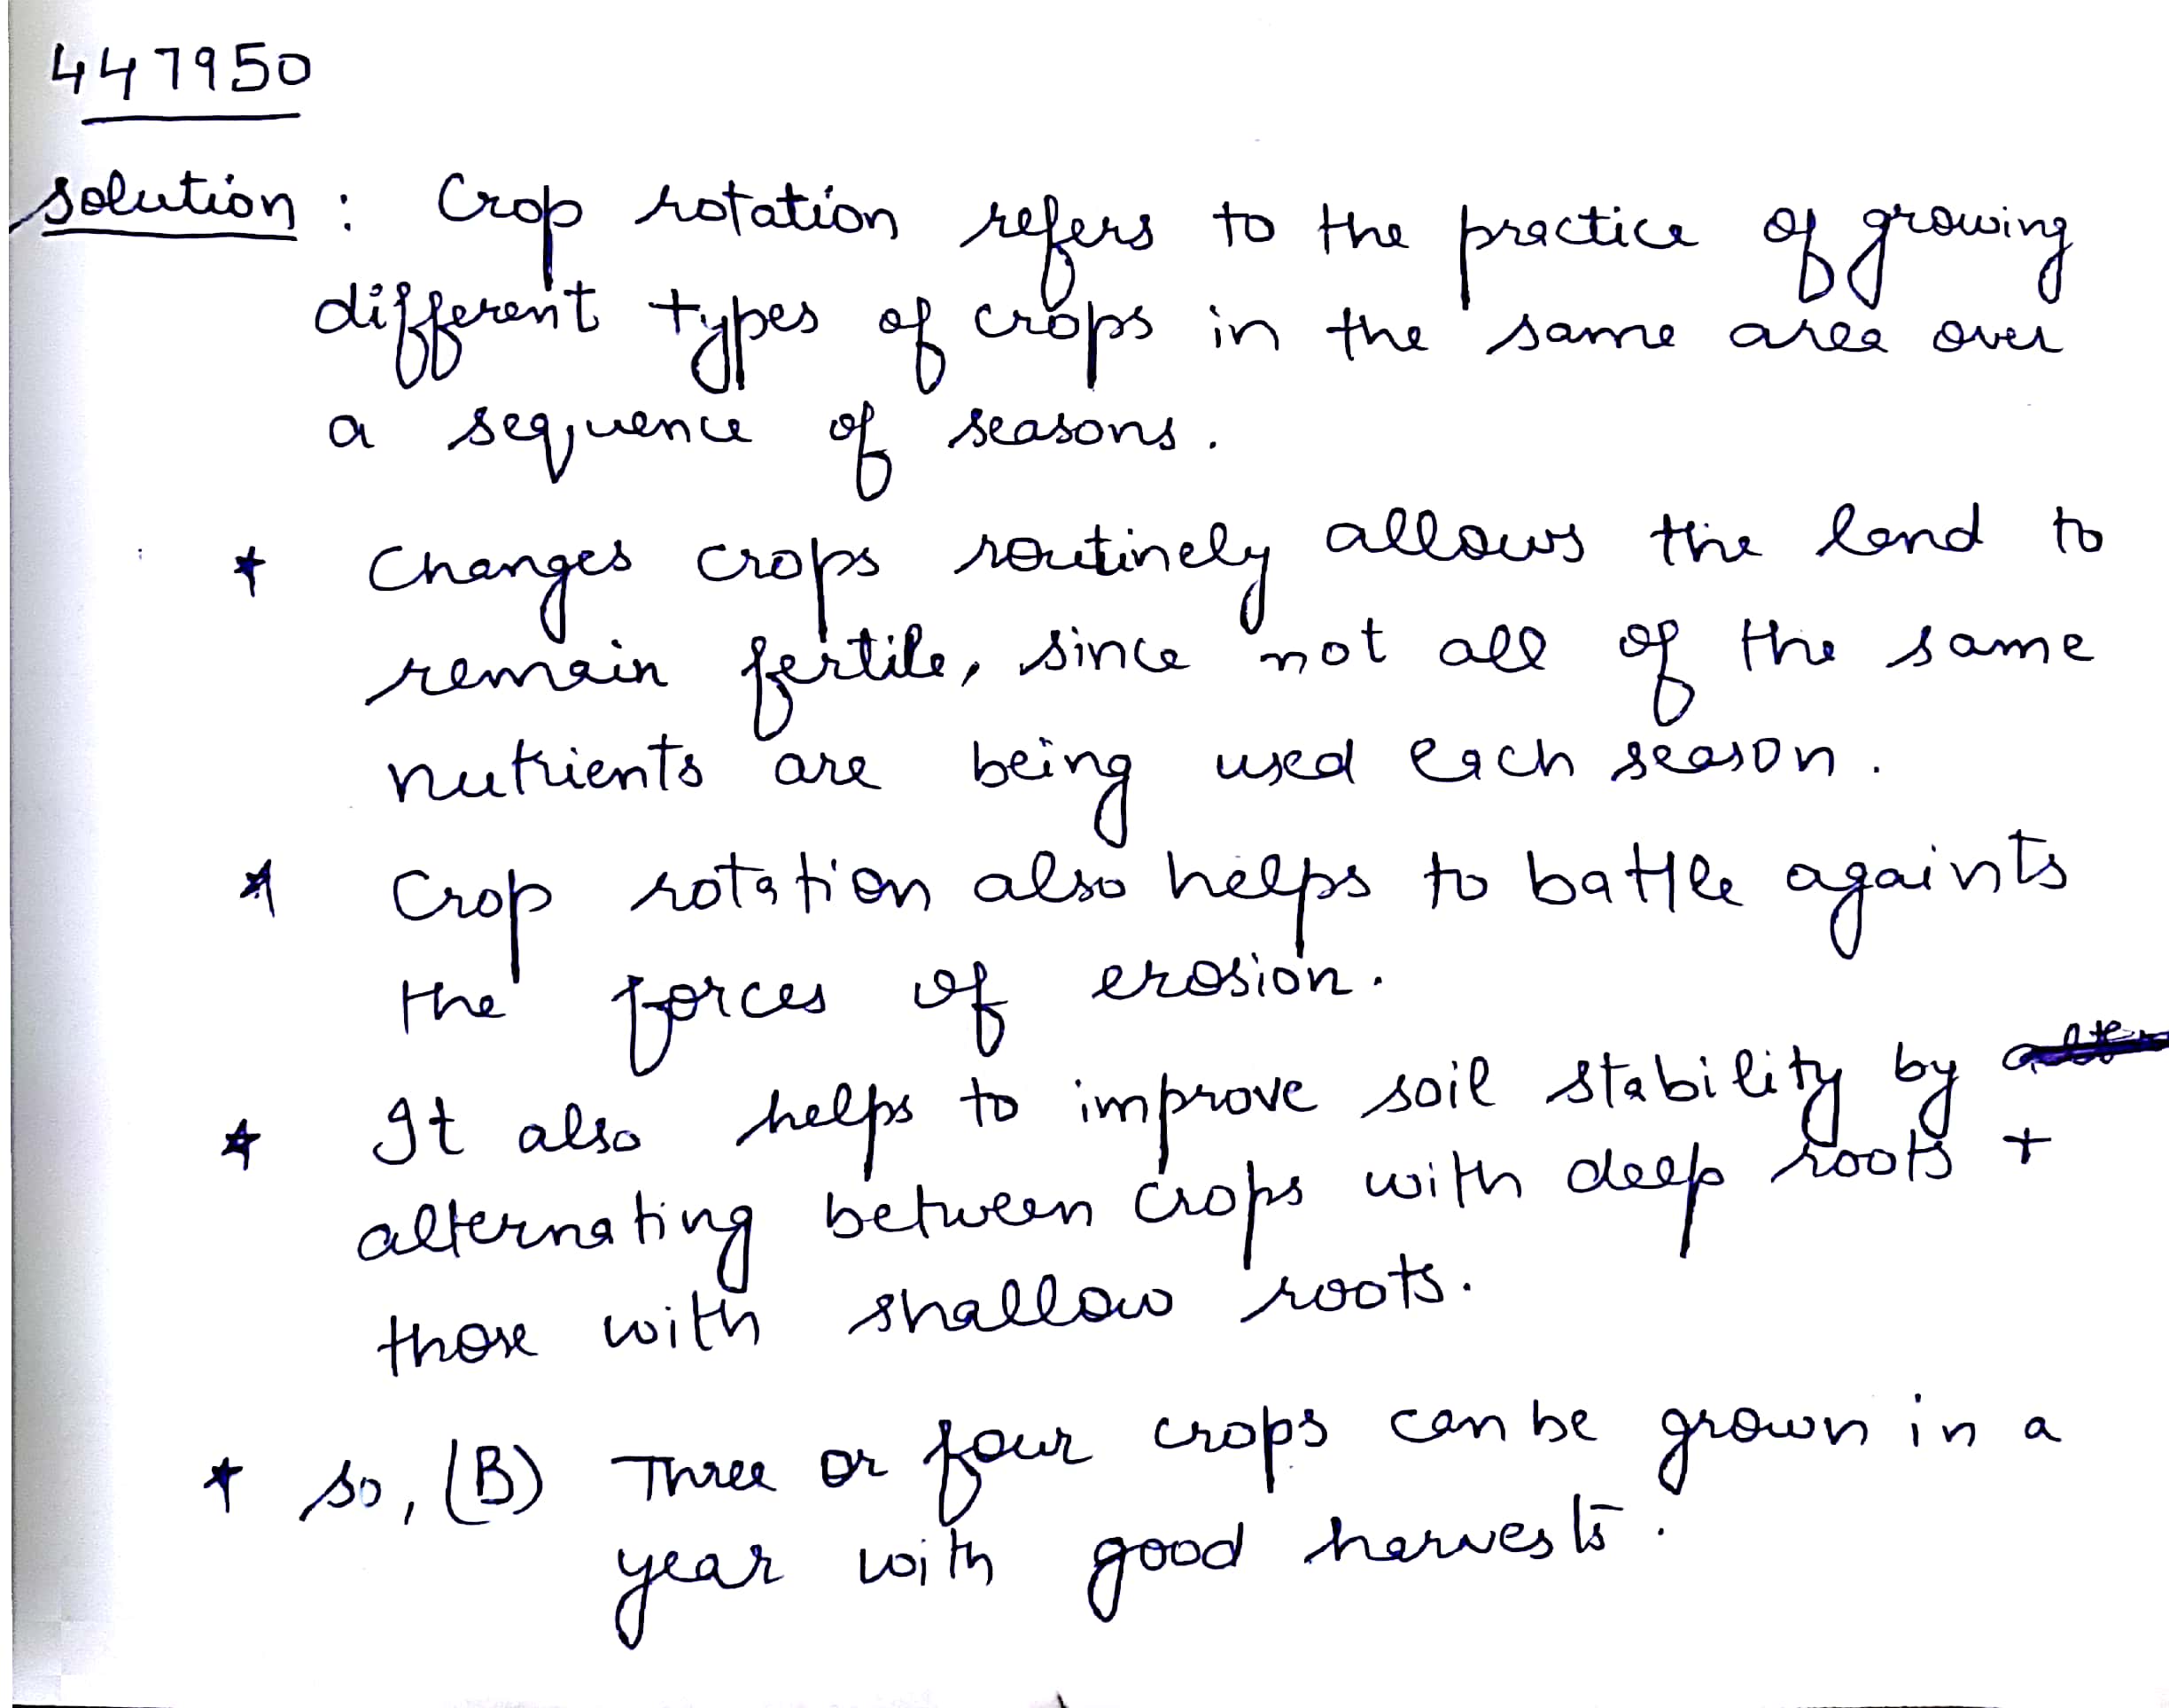 447950
solution : Crop rotation refers to the practice of growing
different types of crops in the same area over
a sequence of seasons.
* Changes crops routinely allows the land to
remain fertile, since not all of the same
nutrients are being used each season.
* Crop rotation also helps to battle againts
the forces of erosion.
* It also helps to improve soil stability by
alternating between crops with deep roots +
those with shallow roots.
* so, (B) Three or four crops can be grown in a
year with good harvests.